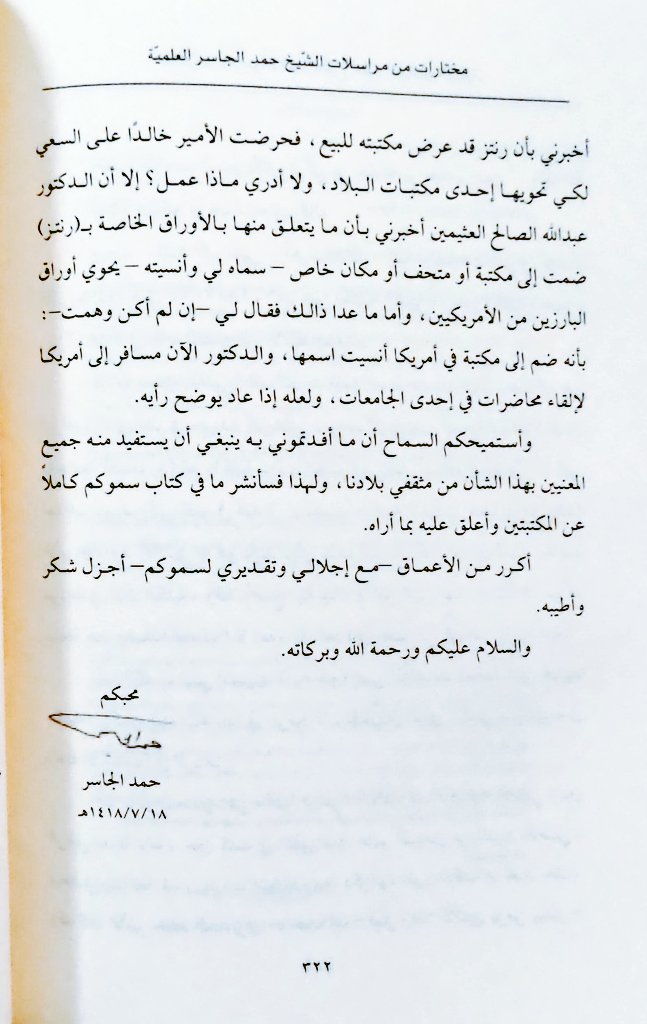 مختارات من مراسلات الشّيخ حمد الجاسر العلميّة
أخبرني بأن رنتز قد عرض مكتبته للبيع، فحرضت الأمير خالدًا على السعي
لكي تحويها إحدى مكتبات البلاد، ولا أدري ماذا عمل؟ إلا أن الدكتور
عبدالله الصالح العثيمين أخبرني بأن ما يتعلق منها بالأوراق الخاصة بـ(رنتز)
ضمت إلى مكتبة أو متحف أو مكان خاص – سماه لي وأنسيته – يحوي أوراق
البارزين من الأمريكيين، وأما ما عدا ذالك فقال لي –إن لم أكن وهمت–:
بأنه ضم إلى مكتبة في أمريكا أنسيت اسمها، والدكتور الآن مسافر إلى أمريكا
لإلقاء محاضرات في إحدى الجامعات، ولعله إذا عاد يوضح رأيه.
وأستميحكم السماح أن ما أفدتموني به ينبغي أن يستفيد منه جميع
المعنيين بهذا الشأن من مثقفي بلادنا، ولهذا فسأنشر ما في كتاب سموكم كاملاً
عن المكتبتين وأعلق عليه بما أراه.
أكرر من الأعماق –مع إجلالي وتقديري لسموكم– أجزل شكر
وأطيبه.
والسلام عليكم ورحمة الله وبركاته.
محبكم
حمد الجاسر
١٤١٨/٧/١٨هـ
٣٢٢